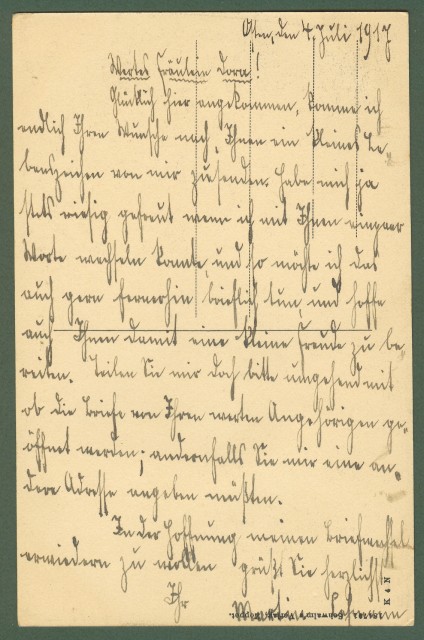 Ofen, den 4. Juli 1917
Wertes Fräulein Dora!
Glücklich hier angekommen, komme ich
endlich Ihren Wunsche nach, Ihnen ein kleines Le-
benszeichen von mir zusenden. Habe mich ja
stets riesig gefreut wenn ich mit Ihnen einpaar
Worte wechseln konnte, und so möchte ich das
auch gern fernerhin brieflich tun, und hoffe
auch Ihnen damit eine kleine Freude zu be-
reiten. Teilen Sie mir doch bitte umgehend mit
ob die Briefe von Ihren werten Angehörigen ge-
öffnet werden; andernfalls Sie mir eine an-
dere Adresse angeben müßten.
In der Hoffnung meinen Briefwechsel
erwiedern zu wollen grüßt Sie herzlichst
Ihr